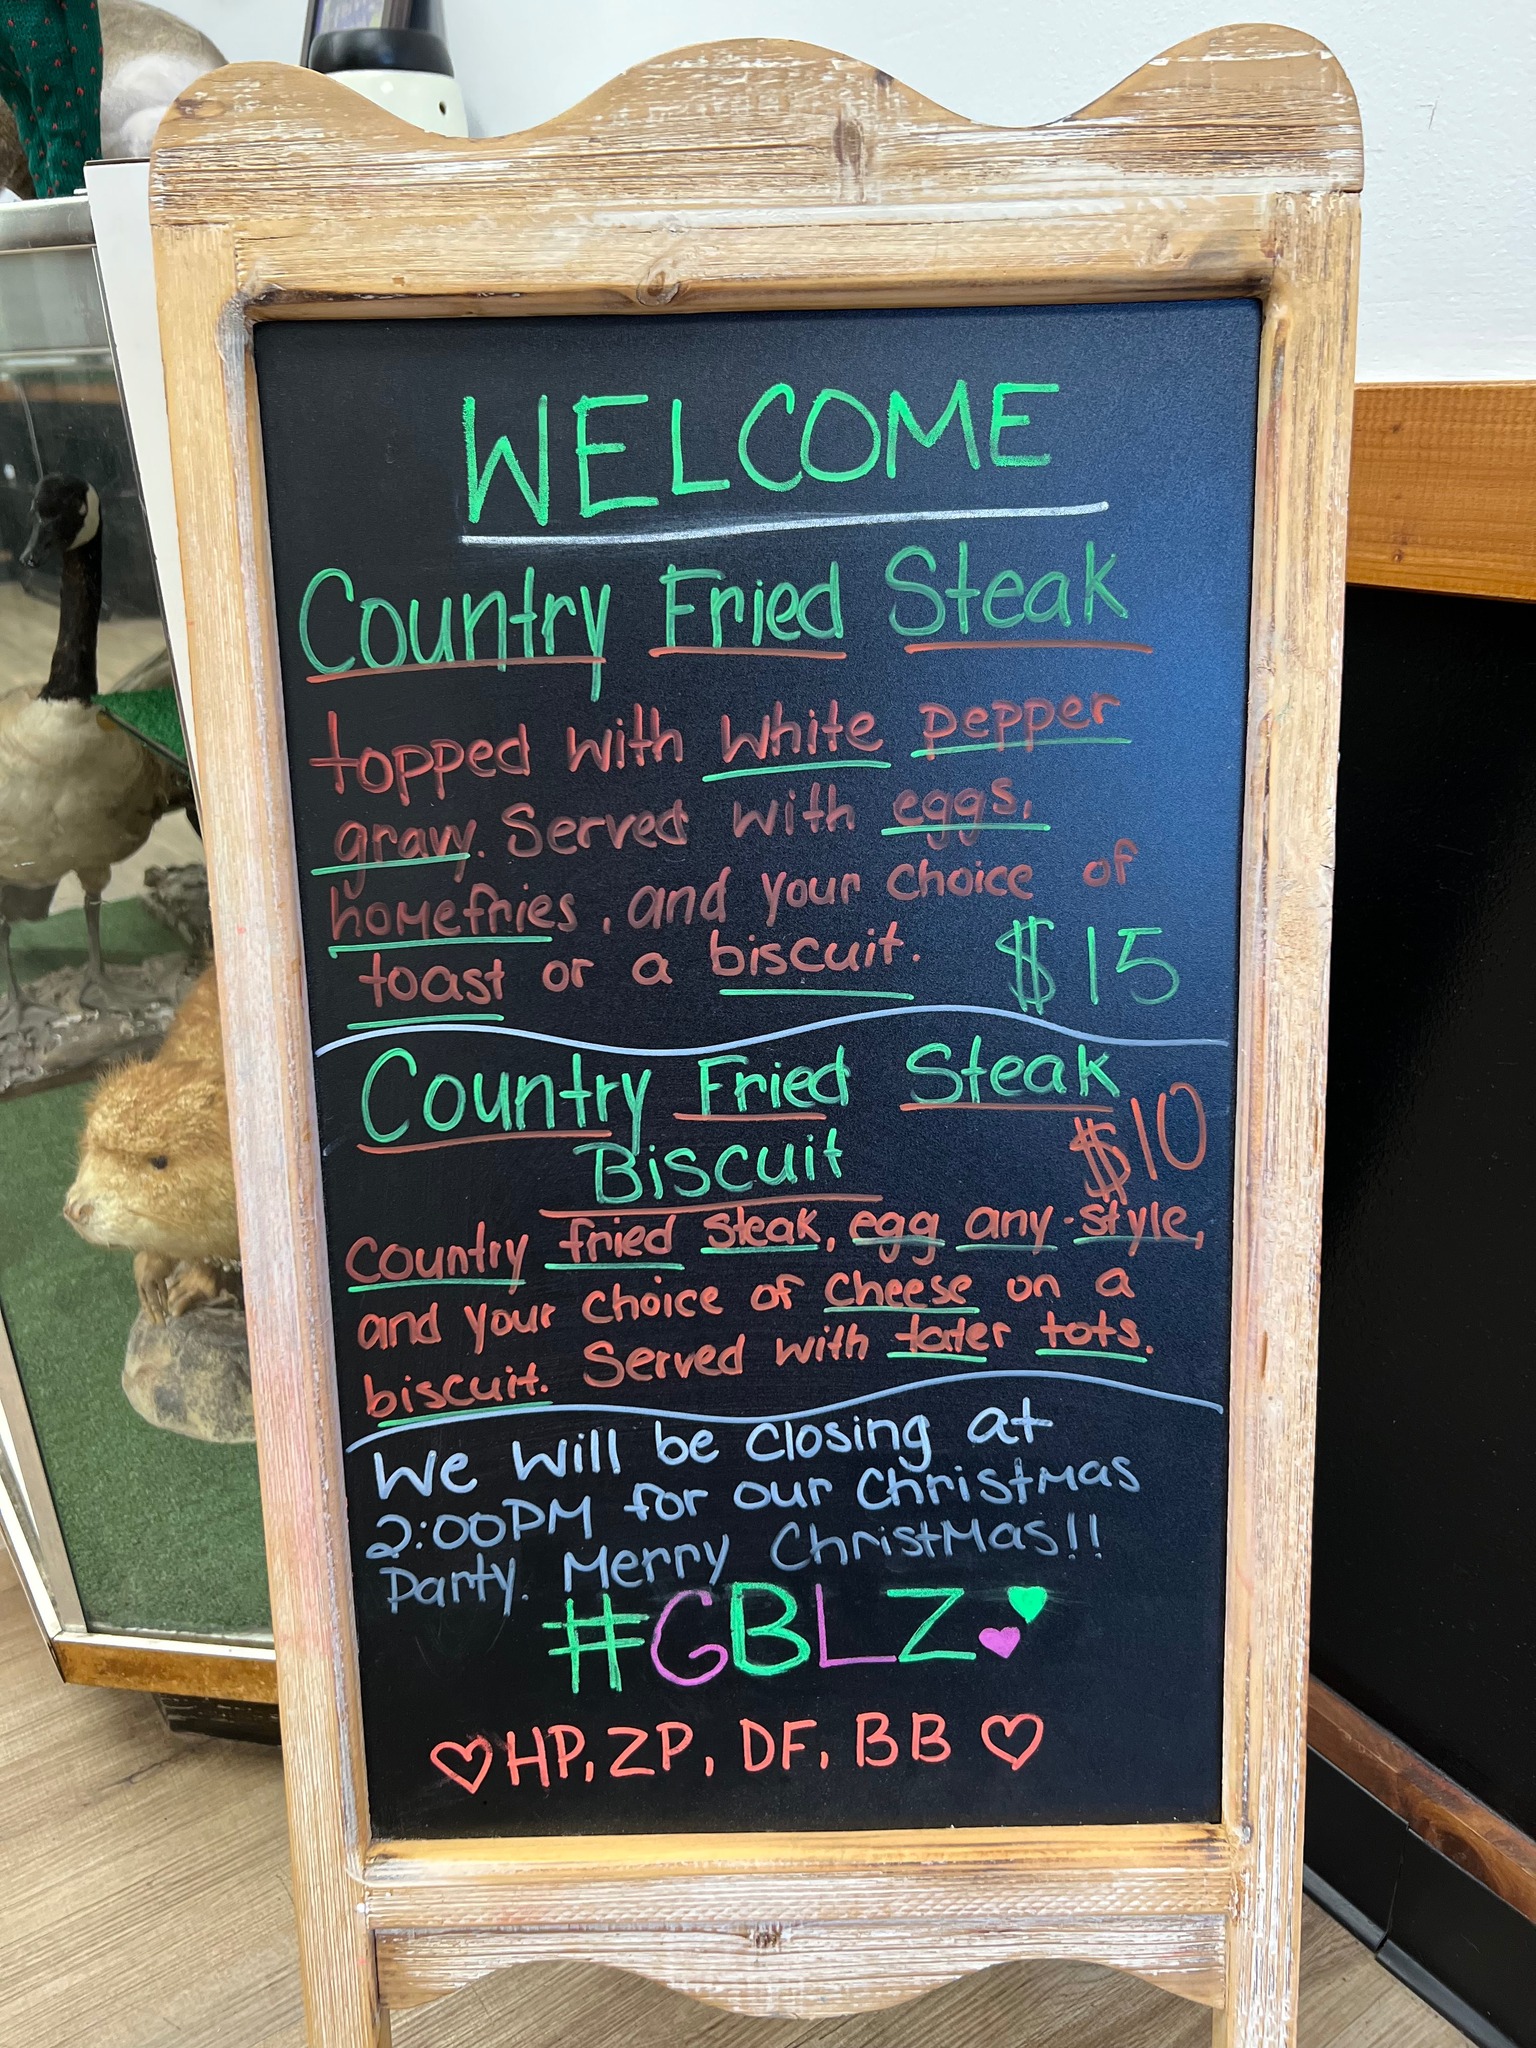 WELCOME
Country Fried Steak
topped with white pepper
gravy. Served with eggs,
homefries, and your choice of
toast or a biscuit. $15
Country Fried Steak
Biscuit $10
Country fried steak, egg any-style,
and your choice of cheese on a
biscuit. Served with tater tots.
We will be closing at
2:00PM for our Christmas
Party. Merry Christmas!!
#GBLZ
HP, ZP, DF, BB